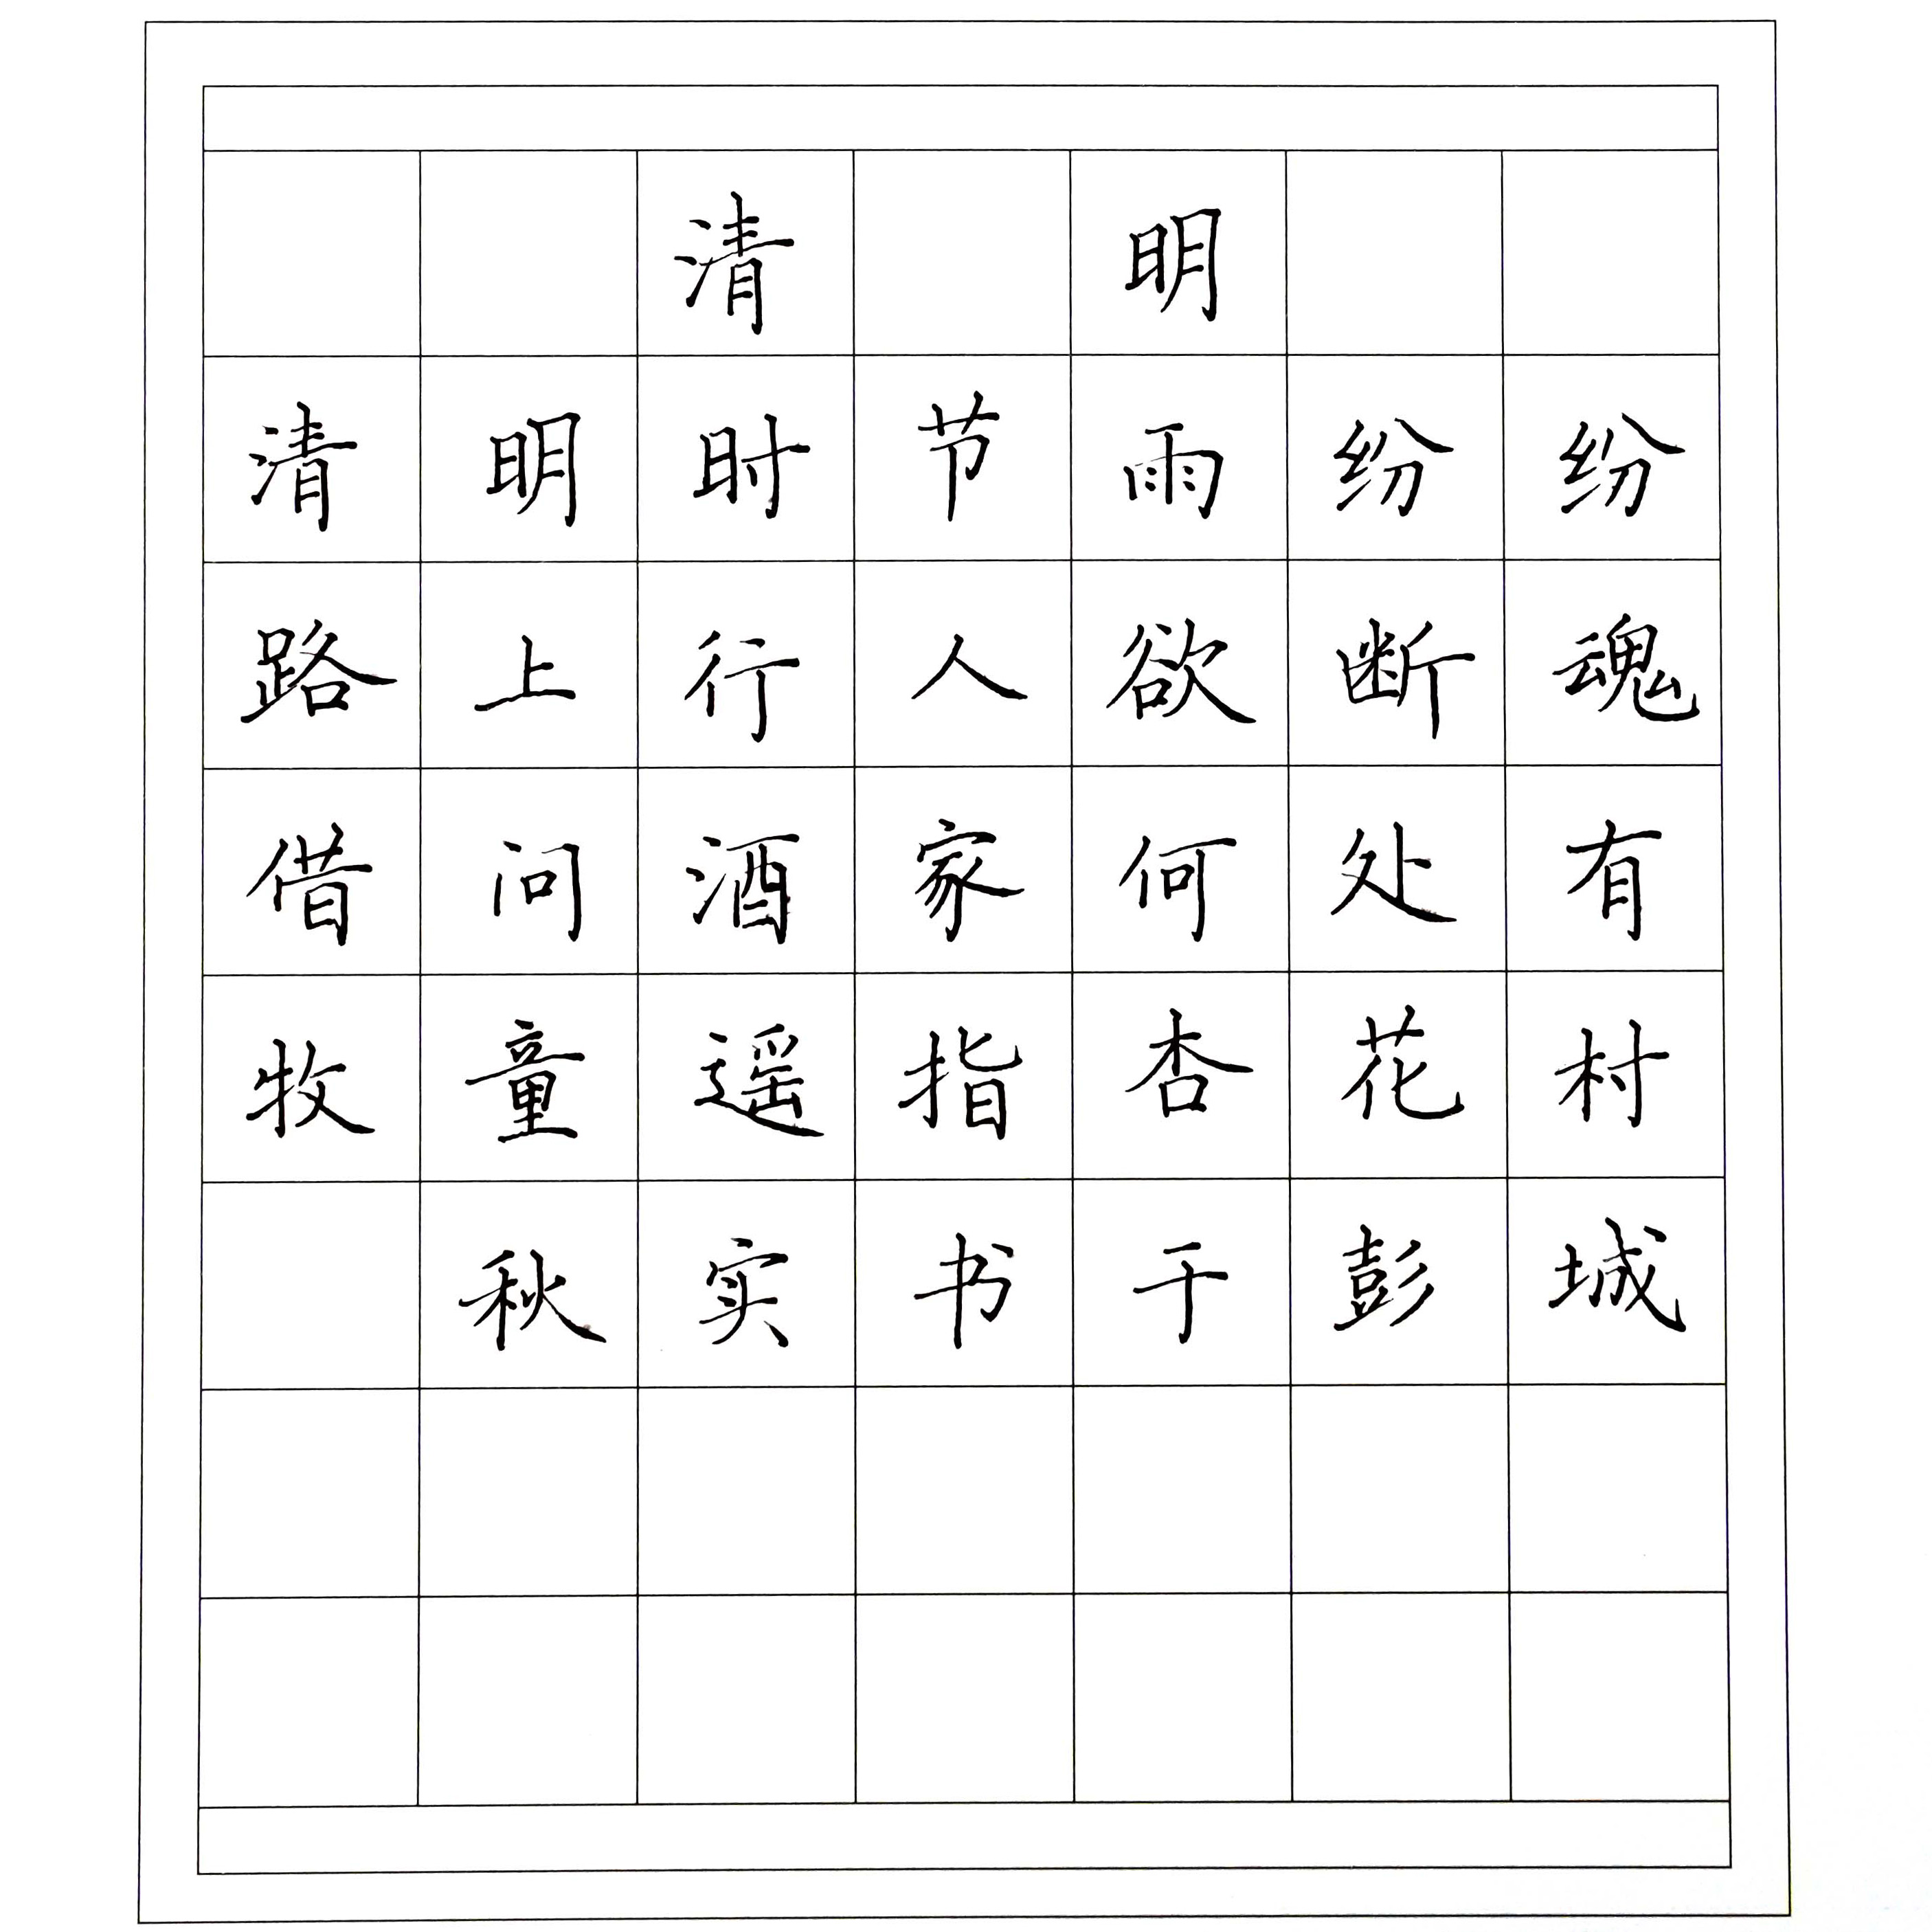 清明
清明时节雨纷纷
路上行人欲断魂
借问酒家何处有
牧童遥指杏花村
秋实书于彭城